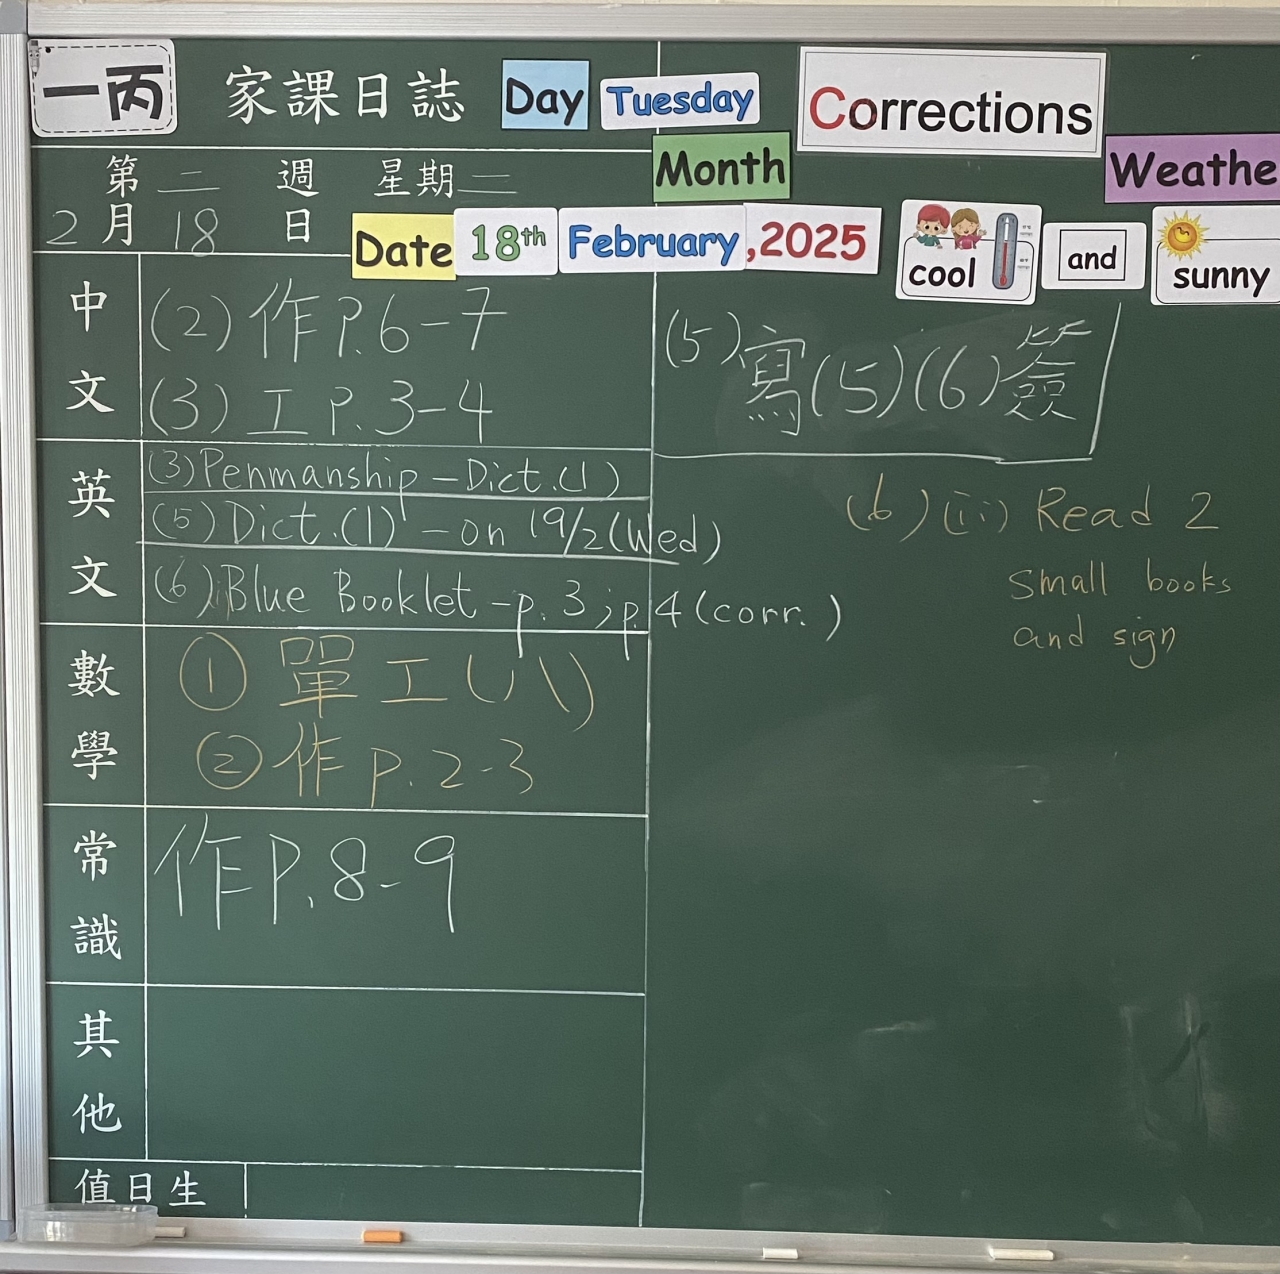 一丙 家課日誌 Day Tuesday Corrections
Month Weathe
第 二 週 星期二
2月 18 日 Date 18th February ,2025 cool and sunny
中文
(2) 作 P.6-7
(3) 工 P.3-4
(5) 寫(5)(6)簽
英文
(3) Penmanship - Dict.(1)
(5) Dict.(1) - on 19/2 (Wed)
(6)(i) Blue Booklet - p.3 ; p.4 (corr.)
(6)(ii) Read 2
small books
and sign
數學
① 單工(八)
② 作 P.2-3
常識
作 P.8-9
其他
值日生